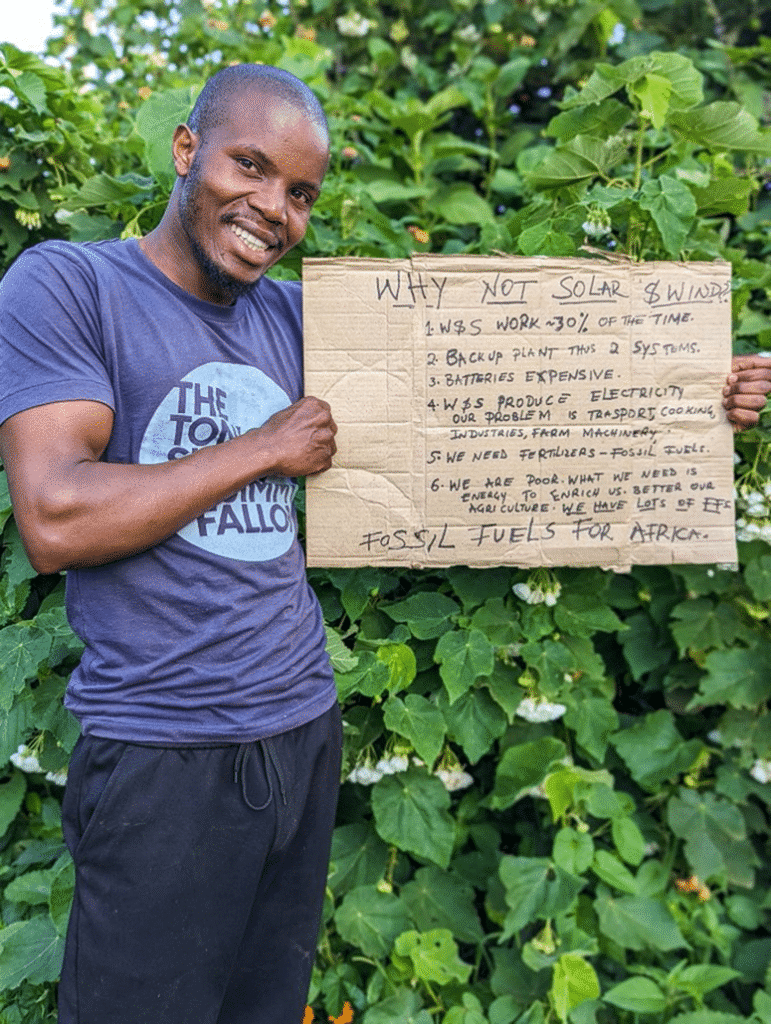 WHY NOT SOLAR & WIND?
1. W&S WORK ~30% OF THE TIME.
2. BACKUP PLANT THUS 2 SYSTEMS.
3. BATTERIES EXPENSIVE.
4. W&S PRODUCE ELECTRICITY
OUR PROBLEM IS TRASPORT, COOKING,
INDUSTRIES, FARM MACHINERY.
5. WE NEED FERTILIZERS - FOSSIL FUELS.
6. WE ARE POOR. WHAT WE NEED IS
ENERGY TO ENRICH US. BETTER OUR
AGRICULTURE. WE HAVE LOTS OF FFS
FOSSIL FUELS FOR AFRICA.
THE
FALLON